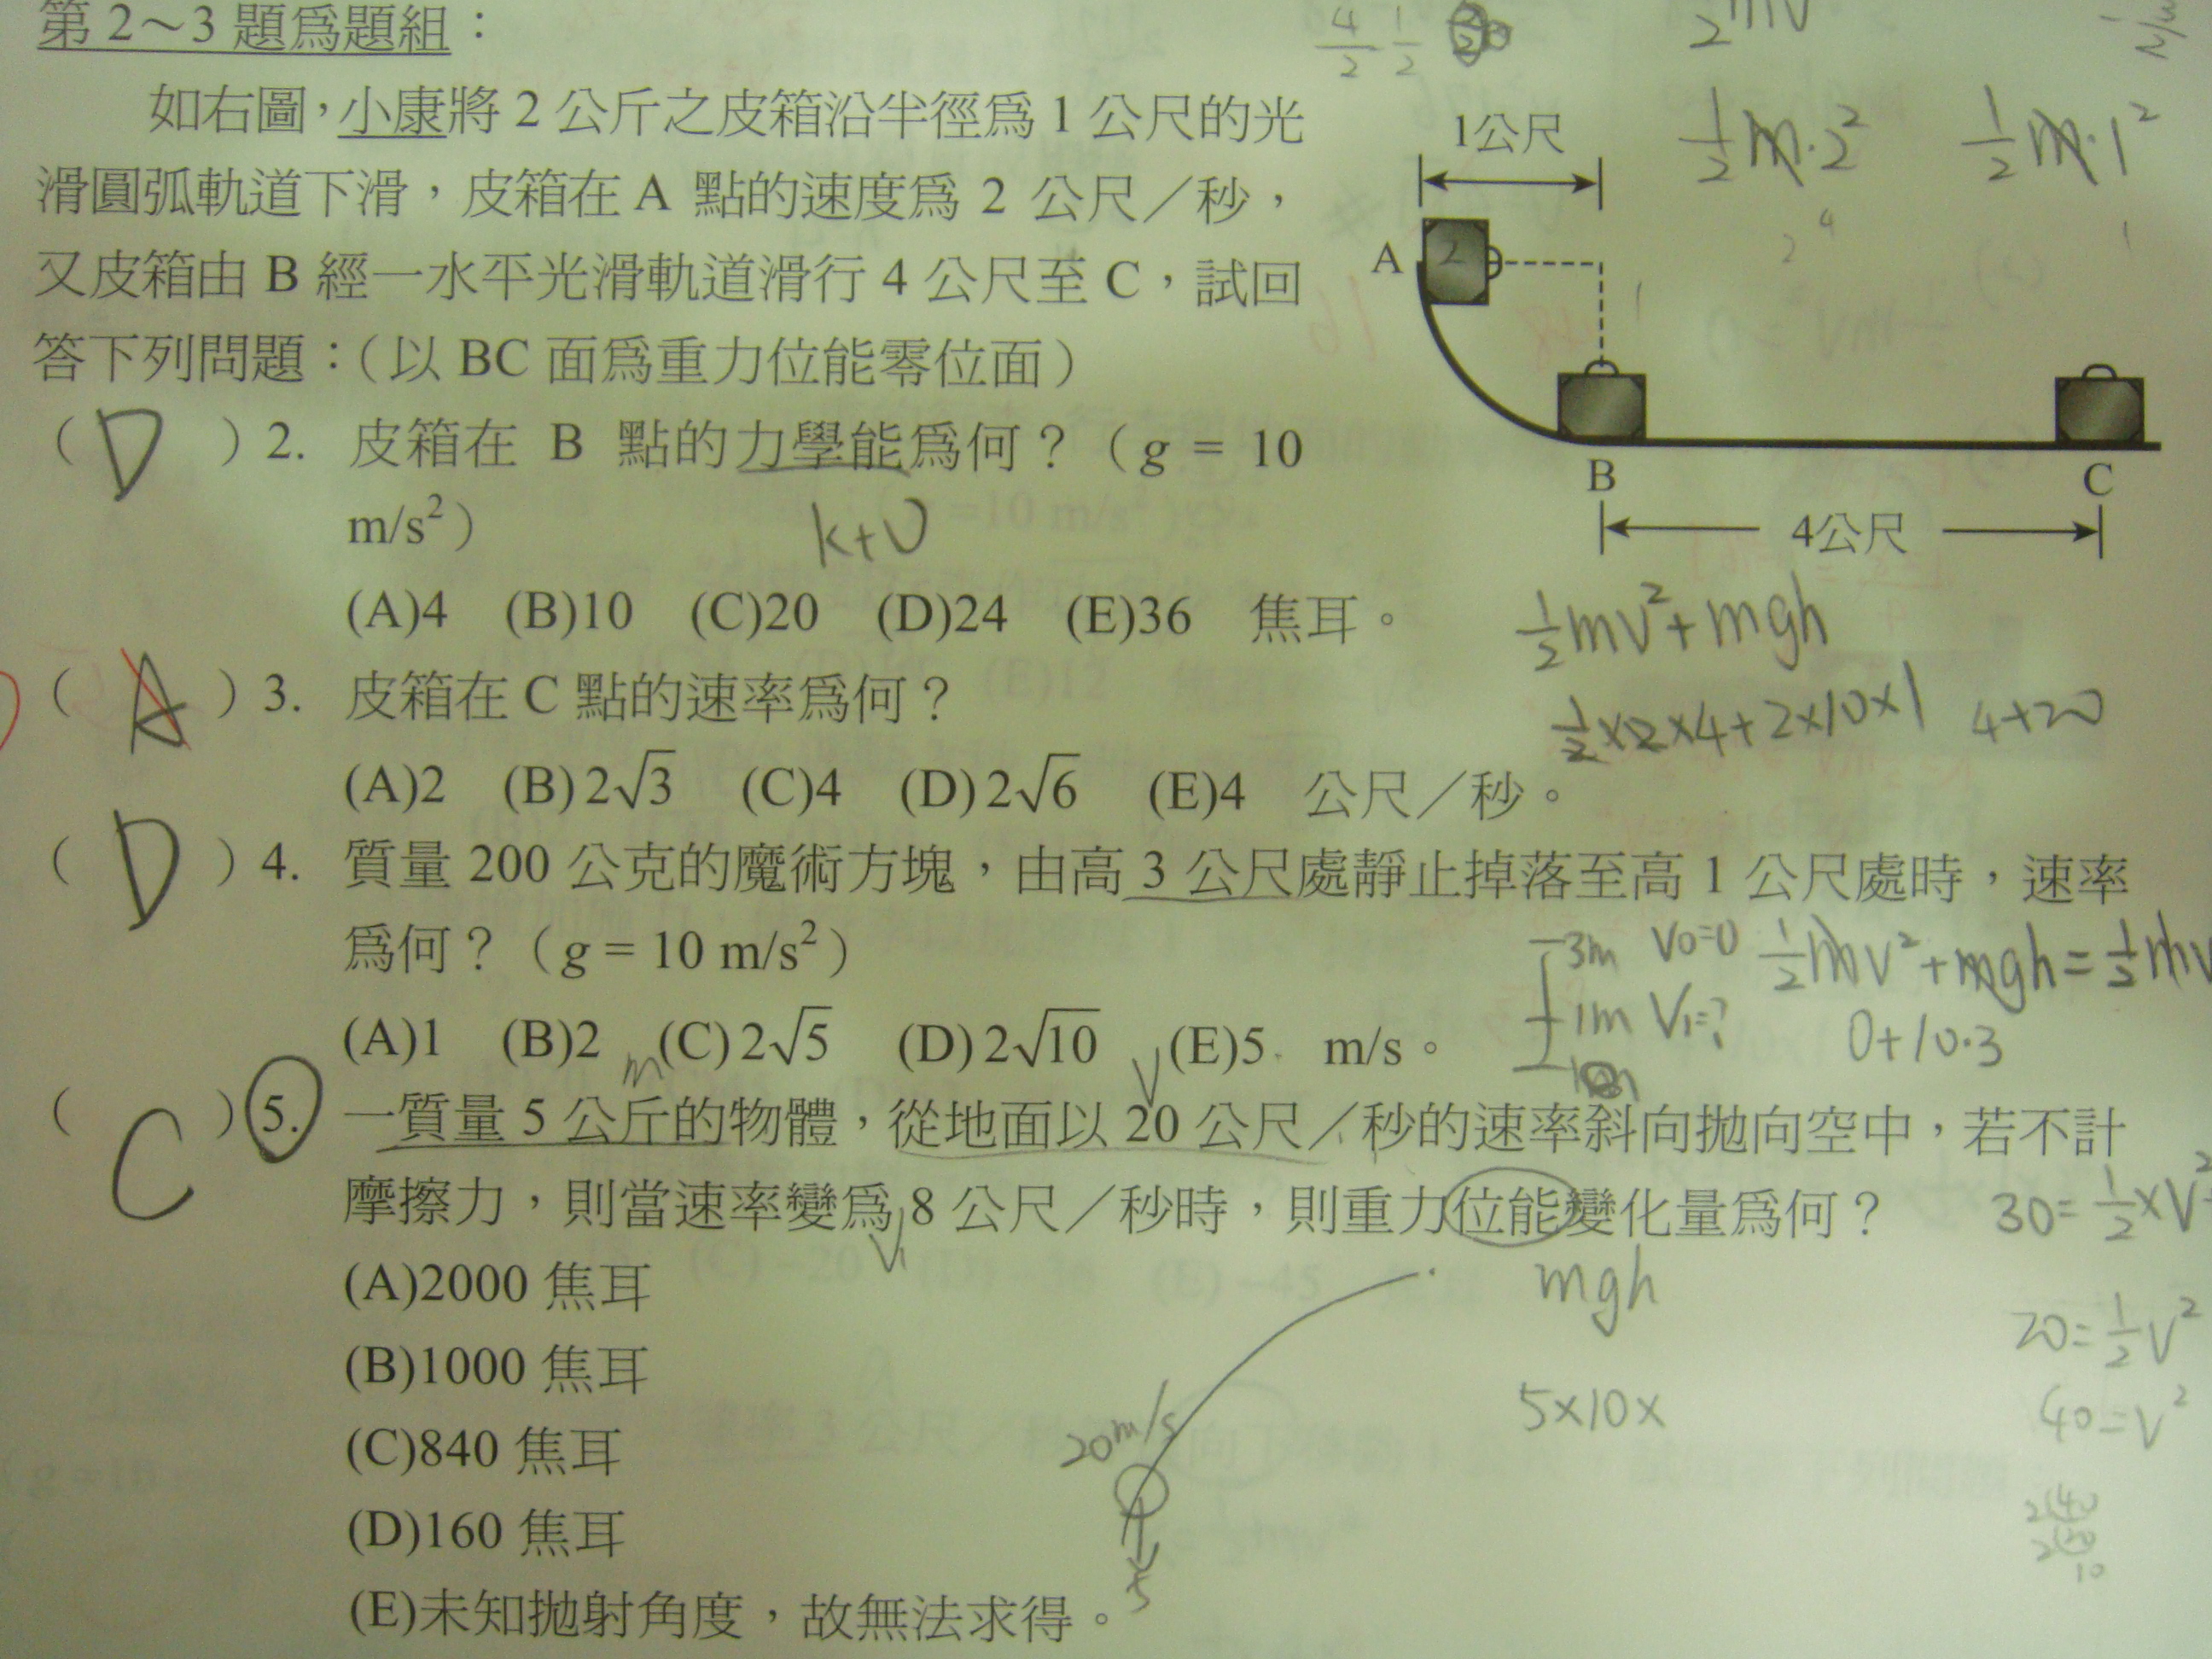 第 2～3 題為題組：
如右圖，小康將 2 公斤之皮箱沿半徑為 1 公尺的光
滑圓弧軌道下滑，皮箱在 A 點的速度為 2 公尺／秒，
又皮箱由 B 經一水平光滑軌道滑行 4 公尺至 C，試回
答下列問題：（以 BC 面為重力位能零位面）
1公尺
A
2
B
C
4公尺
½m·2²
½m·1²
（ D ）2. 皮箱在 B 點的力學能為何？（g = 10
m/s²）
k+U
(A)4 (B)10 (C)20 (D)24 (E)36 焦耳。
½mv²+mgh
½×2×4+2×10×1 4+20
（ A ）3. 皮箱在 C 點的速率為何？
(A)2 (B)2√3 (C)4 (D)2√6 (E)4 公尺／秒。
（ D ）4. 質量 200 公克的魔術方塊，由高 3 公尺處靜止掉落至高 1 公尺處時，速率
為何？（g = 10 m/s²）
3m V0=0 ½mv²+mgh=½mv
1m V1=?
0+10·3
(A)1 (B)2 (C)2√5 (D)2√10 (E)5 m/s。
m V
（ C ）5. 一質量 5 公斤的物體，從地面以 20 公尺／秒的速率斜向拋向空中，若不計
摩擦力，則當速率變為 8 公尺／秒時，則重力位能變化量為何？
30=½×V²
V1
mgh
(A)2000 焦耳
20=½V²
(B)1000 焦耳
5×10×
40=V²
(C)840 焦耳
20m/s
(D)160 焦耳
5
(E)未知拋射角度，故無法求得。